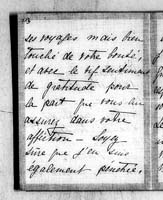 ses voyages mais bien
touché de votre bonté,
et avec le vif sentiment
de gratitude pour
la part que vous me
assurez dans votre
affection — Soyez
sûre que j'en suis
également pénétrée,